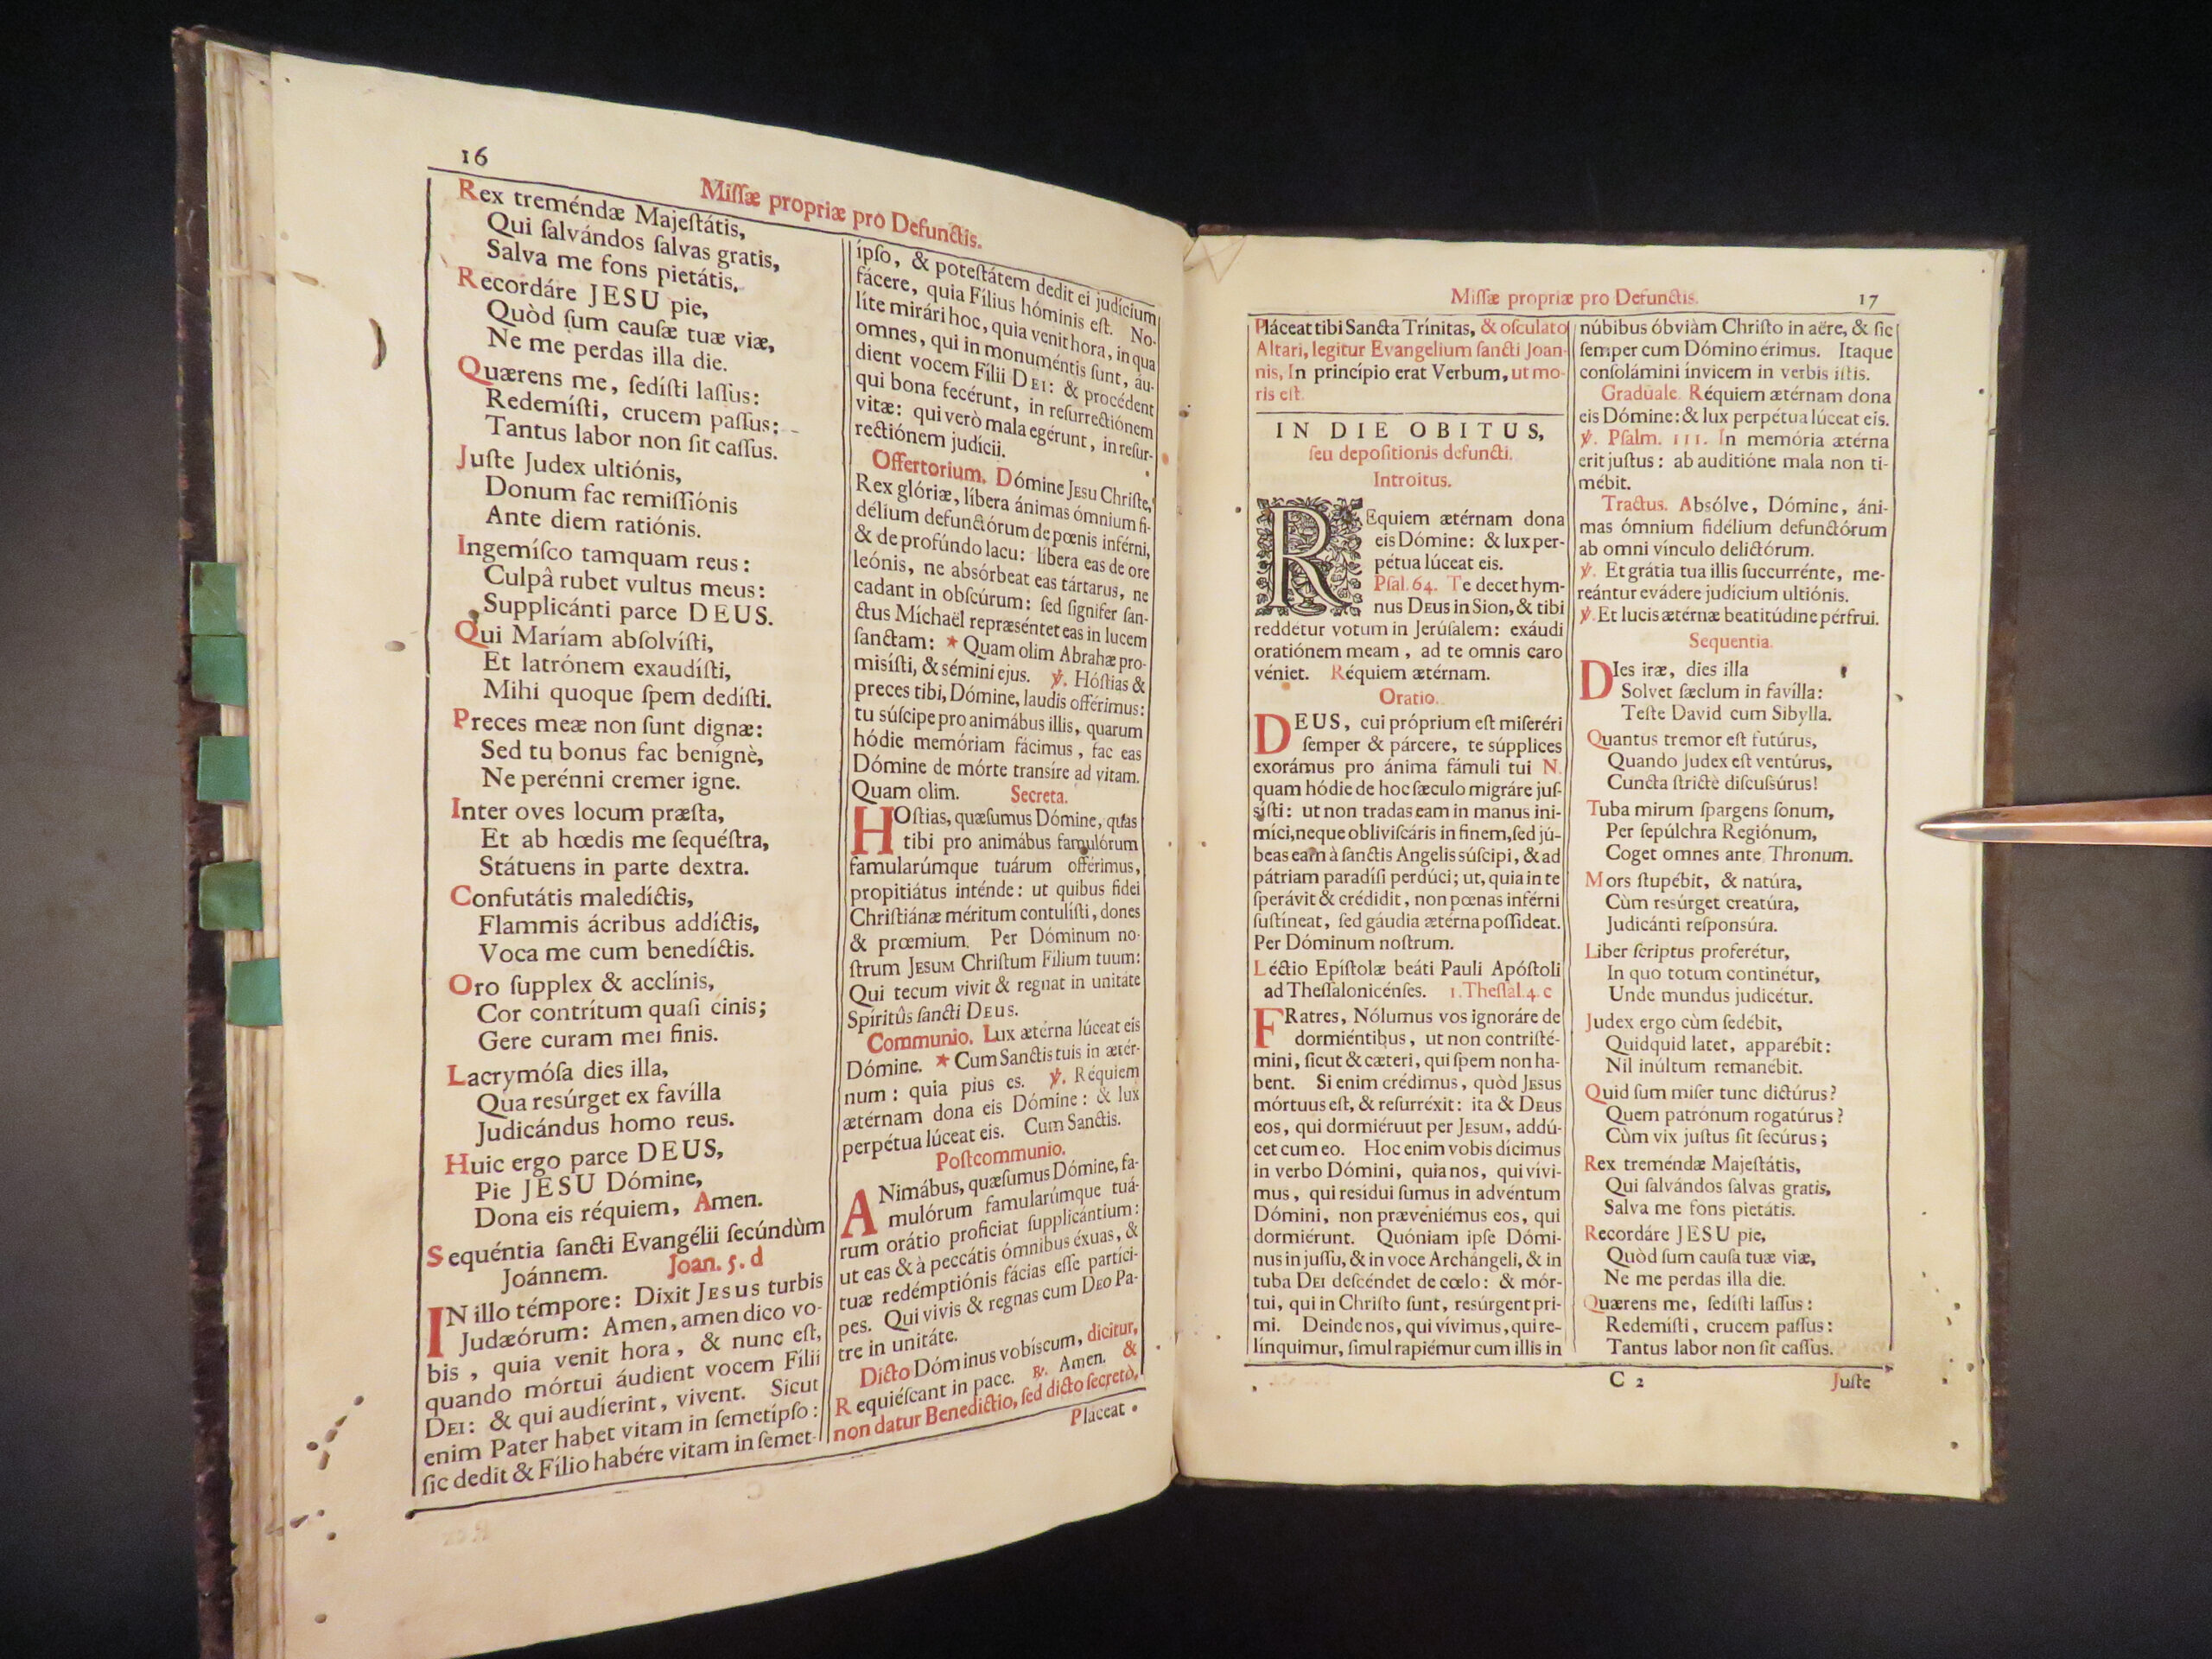 16
Miſſæ propriæ pro Defunctis.
Rex treméndæ Majeſtátis,
Qui ſalvándos ſalvas gratis,
Salva me fons pietátis.
Recordáre JESU pie,
Quòd ſum cauſæ tuæ viæ,
Ne me perdas illa die.
Quærens me, ſedíſti laſſus:
Redemíſti, crucem paſſus:
Tantus labor non ſit caſſus.
Juſte Judex ultiónis,
Donum fac remiſſiónis
Ante diem ratiónis.
Ingemíſco tamquam reus:
Culpâ rubet vultus meus:
Supplicánti parce DEUS.
Qui Maríam abſolvíſti,
Et latrónem exaudíſti,
Mihi quoque ſpem dedíſti.
Preces meæ non ſunt dignæ:
Sed tu bonus fac benígnè,
Ne perénni cremer igne.
Inter oves locum præſta,
Et ab hœdis me ſequéſtra,
Státuens in parte dextra.
Confutátis maledíctis,
Flammis ácribus addíctis,
Voca me cum benedíctis.
Oro ſupplex & acclínis,
Cor contrítum quaſi cinis;
Gere curam mei finis.
Lacrymóſa dies illa,
Qua resúrget ex favílla
Judicándus homo reus.
Huic ergo parce DEUS,
Pie JESU Dómine,
Dona eis réquiem, Amen.
Sequéntia ſancti Evangélii ſecúndùm
Joánnem. Joan. 5. d
IN illo témpore: Dixit JESUS turbis
Judæórum: Amen, amen dico vo-
bis, quia venit hora, & nunc eſt,
quando mórtui áudient vocem Fílii
DEI: & qui audíerint, vivent. Sicut
enim Pater habet vitam in ſemetípſo:
ſic dedit & Fílio habére vitam in ſemet-
ípſo, & poteſtátem dedit ei judícium
fácere, quia Fílius hóminis eſt. No-
líte mirári hoc, quia venit hora, in qua
omnes, qui in monuméntis ſunt, áu-
dient vocem Fílii DEI: & procédent
qui bona fecérunt, in reſurrectiónem
vitæ: qui verò mala egérunt, in reſur-
rectiónem judícii.
Offertorium. Dómine JESU Chriſte,
Rex glóriæ, líbera ánimas ómnium fi-
délium defunctórum de pœnis inférni,
& de profúndo lacu: líbera eas de ore
leónis, ne absórbeat eas tártarus, ne
cadant in obſcúrum: ſed ſígnifer ſan-
ctus Míchaël repræséntet eas in lucem
ſanctam: * Quam olim Abrahæ pro-
misíſti, & sémini ejus. ℣. Hóſtias &
preces tibi, Dómine, laudis offérimus:
tu súſcipe pro animábus illis, quarum
hódie memóriam fácimus, fac eas
Dómine de mórte transíre ad vitam.
Quam olim. Secreta.
HOſtias, quæſumus Dómine, quas
tibi pro animábus famulórum
famularúmque tuárum offérimus,
propitiátus inténde: ut quibus fidei
Chriſtiánæ méritum contulíſti, dones
& prœmium. Per Dóminum no-
ſtrum JESUM Chriſtum Filium tuum:
Qui tecum vivit & regnat in unitáte
Spíritûs ſancti DEUS.
Communio. Lux ætérna lúceat eis
Dómine. * Cum Sanctis tuis in ætér-
num: quia pius es. ℣. Réquiem
ætérnam dona eis Dómine: & lux
perpétua lúceat eis. Cum Sanctis.
Poſtcommunio.
ANimábus, quæſumus Dómine, fa-
mulórum famularúmque tuá-
rum orátio proficiat ſupplicántium:
ut eas & à peccátis ómnibus éxuas, &
tuæ redémptiónis fácias eſſe partíci-
pes. Qui vivis & regnas cum DEO Pa-
tre in unitáte.
Dicto Dóminus vobíscum, dicitur,
Requiéſcant in pace. ℟. Amen. &
non datur Benedictio, ſed dicto ſecretò,
Pláceat
Miſſæ propriæ pro Defunctis. 17
Pláceat tibi Sancta Trínitas, & oſculato
Altari, legitur Evangelium ſancti Joan-
nis, In princípio erat Verbum, ut mo-
ris eſt.
IN DIE OBITUS,
ſeu depoſitionis defuncti.
Introitus.
REquiem ætérnam dona
eis Dómine: & lux per-
pétua lúceat eis.
Pſal. 64. Te decet hym-
nus DEUS in Sion, & tibi
reddétur votum in Jerúſalem: exáudi
oratiónem meam, ad te omnis caro
véniet. Réquiem ætérnam.
Oratio.
DEUS, cui próprium eſt miſeréri
ſemper & párcere, te súpplices
exorámus pro ánima fámuli tui N.
quam hódie de hoc ſæculo migráre juſ-
síſti: ut non tradas eam in manus ini-
míci, neque obliviſcáris in finem, ſed jú-
beas eam à ſanctis Angelis súſcipi, & ad
pátriam paradíſi perdúci; ut, quia in te
ſperávit & crédidit, non pœnas inférni
ſuſtíneat, ſed gáudia ætérna poſſídeat.
Per Dóminum noſtrum.
Léctio Epíſtolæ beáti Pauli Apóſtoli
ad Theſſalonicénſes. 1. Theſſal. 4. c
FRatres, Nólumus vos ignoráre de
dormiéntibus, ut non contriſté-
mini, ſicut & cæteri, qui ſpem non ha-
bent. Si enim crédimus, quòd JESUS
mórtuus eſt, & reſurréxit: ita & DEUS
eos, qui dormiéruut per JESUM, addú-
cet cum eo. Hoc enim vobis dícimus
in verbo Dómini, quia nos, qui vívi-
mus, qui resídui ſumus in advéntum
Dómini, non præveniémus eos, qui
dormiérunt. Quóniam ipſe Dómi-
nus in juſſu, & in voce Archángeli, & in
tuba DEI deſcéndet de cœlo: & mór-
tui, qui in Chriſto ſunt, resúrgent pri-
mi. Deinde nos, qui vívimus, qui re-
línquimur, ſimul rapiémur cum illis in
núbibus óbviàm Chriſto in aëre, & ſic
ſemper cum Dómino érimus. Itaque
conſolámini ínvicem in verbis iſtis.
Graduale. Réquiem ætérnam dona
eis Dómine: & lux perpétua lúceat eis.
℣. Pſalm. 111. In memória ætérna
erit juſtus: ab auditióne mala non ti-
mébit.
Tractus. Absólve, Dómine, áni-
mas ómnium fidélium defunctórum
ab omni vínculo delictórum.
℣. Et grátia tua illis ſuccurrénte, me-
reántur evádere judícium ultiónis.
℣. Et lucis ætérnæ beatitúdine pérfrui.
Sequentia.
DIes iræ, dies illa
Solvet ſæclum in favílla:
Teſte David cum Sibylla.
Quantus tremor eſt futúrus,
Quando Judex eſt ventúrus,
Cuncta ſtrictè diſcuſsúrus!
Tuba mirum ſpargens ſonum,
Per ſepúlchra Regiónum,
Coget omnes ante Thronum.
Mors ſtupébit, & natúra,
Cùm resúrget creatúra,
Judicánti reſponsúra.
Liber ſcriptus proferétur,
In quo totum continétur,
Unde mundus judicétur.
Judex ergo cùm ſedébit,
Quidquid latet, apparébit:
Nil inúltum remanébit.
Quid ſum miſer tunc dictúrus?
Quem patrónum rogatúrus?
Cùm vix juſtus ſit ſecúrus;
Rex treméndæ Majeſtátis,
Qui ſalvándos ſalvas gratis,
Salva me fons pietátis.
Recordáre JESU pie,
Quòd ſum cauſa tuæ viæ,
Ne me perdas illa die.
Quærens me, ſedíſti laſſus:
Redemíſti, crucem paſſus:
Tantus labor non ſit caſſus.
C 2 Juſte